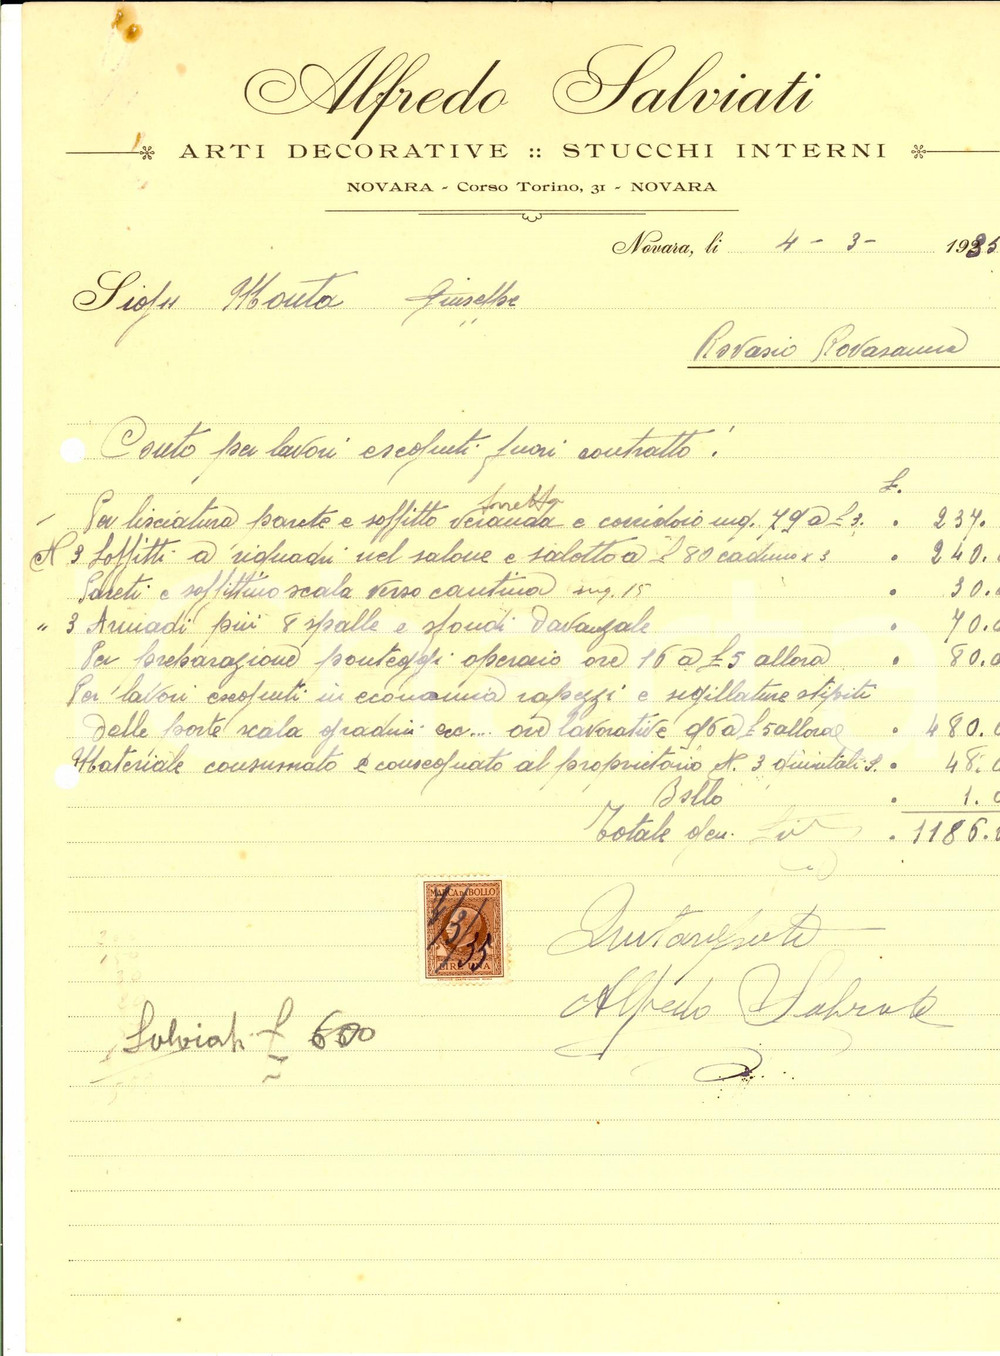 Alfredo Salviati
ARTI DECORATIVE :: STUCCHI INTERNI
NOVARA - Corso Torino, 31 - NOVARA
Novara, li 4 - 3 - 1935
Sigr Monta Giuseppe
Rovasio Rovasenda
Conto per lavori eseguiti fuori contratto:
£.
Per lisciatura parete e soffitto veranda e corridoio mq. 79 a £ 3. . 237.
N 3 Soffitti a riquadri nel salone e salotto a £ 80 caduno x 3 . 240.
Pareti e soffittino scala verso cantina mq. 15 . 30.
" 3 Armadi più 8 spalle e sfondi Davanzale . 70.
Per preparazione ponteggi operaio ore 16 a £ 5 allora . 80.
Per lavori eseguiti in economia rapezzi e sigillature stipiti
delle porte scala gradini ecc.... ore lavorative 96 a £ 5 allora . 480.
Materiale consumato e consegnato al proprietario N. 3 quintali . 48.
Bollo . 1.
Totale gen. . 1186.
MARCA DA BOLLO
4/3/35
LIRE UNA
Alfredo Salviati
Salviati £ 600